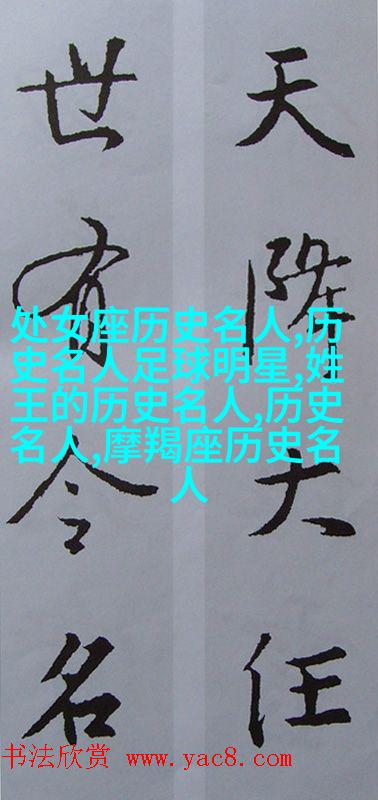 天降大任
世有令名
处女座历史名人,历
史名人足球明星,姓
王的历史名人,历史
名人,摩羯座历史名
人
书法欣赏 www.yac8.com